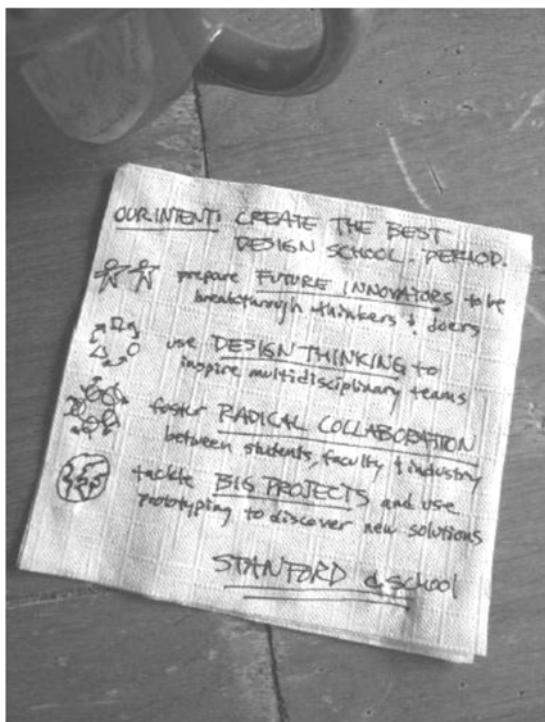 OUR INTENT: CREATE THE BEST
DESIGN SCHOOL. PERIOD.
prepare FUTURE INNOVATORS to be
breakthrough thinkers & doers
use DESIGN THINKING to
inspire multidisciplinary teams
foster RADICAL COLLABORATION
between students, faculty & industry
tackle BIG PROJECTS and use
prototyping to discover new solutions
STANFORD d.school